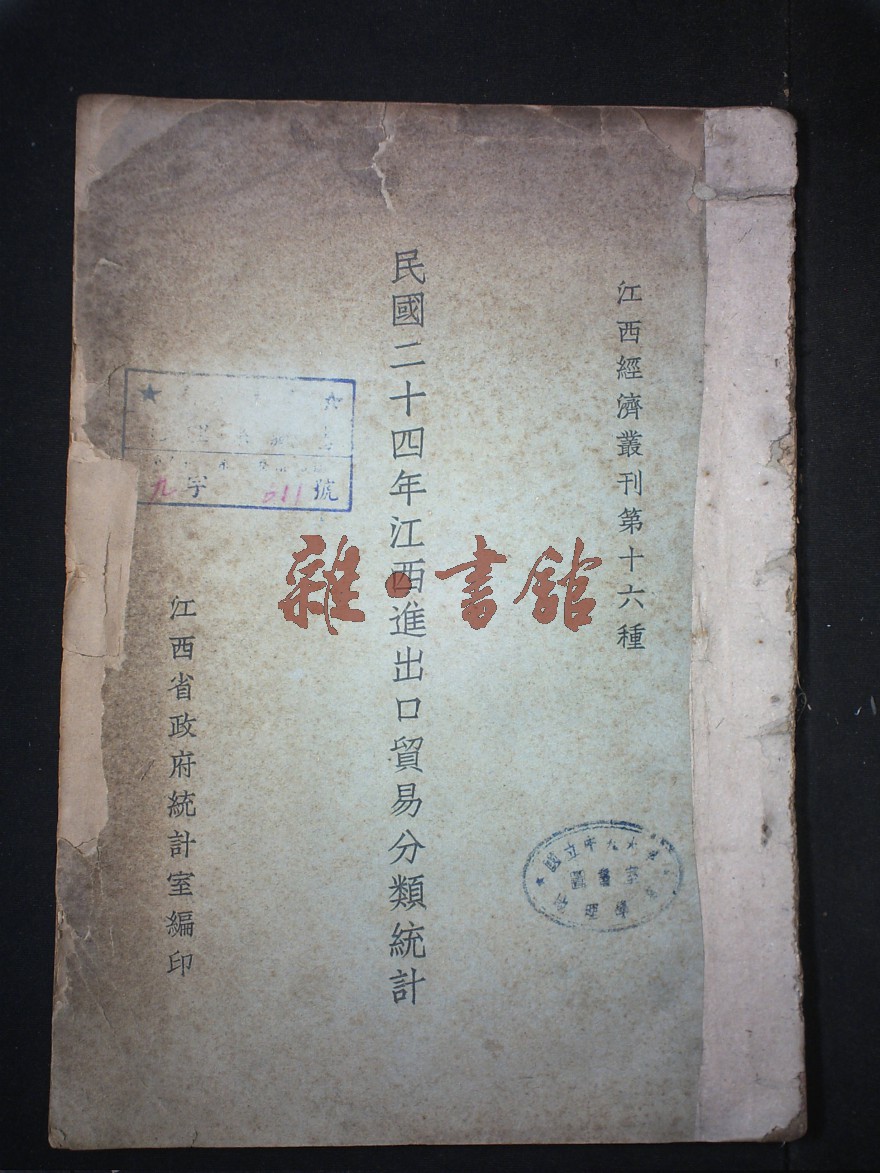 江西經濟叢刊第十六種
民國二十四年江西進出口貿易分類統計
江西省政府統計室編印
雜·書館
九字 011 號
圖書室